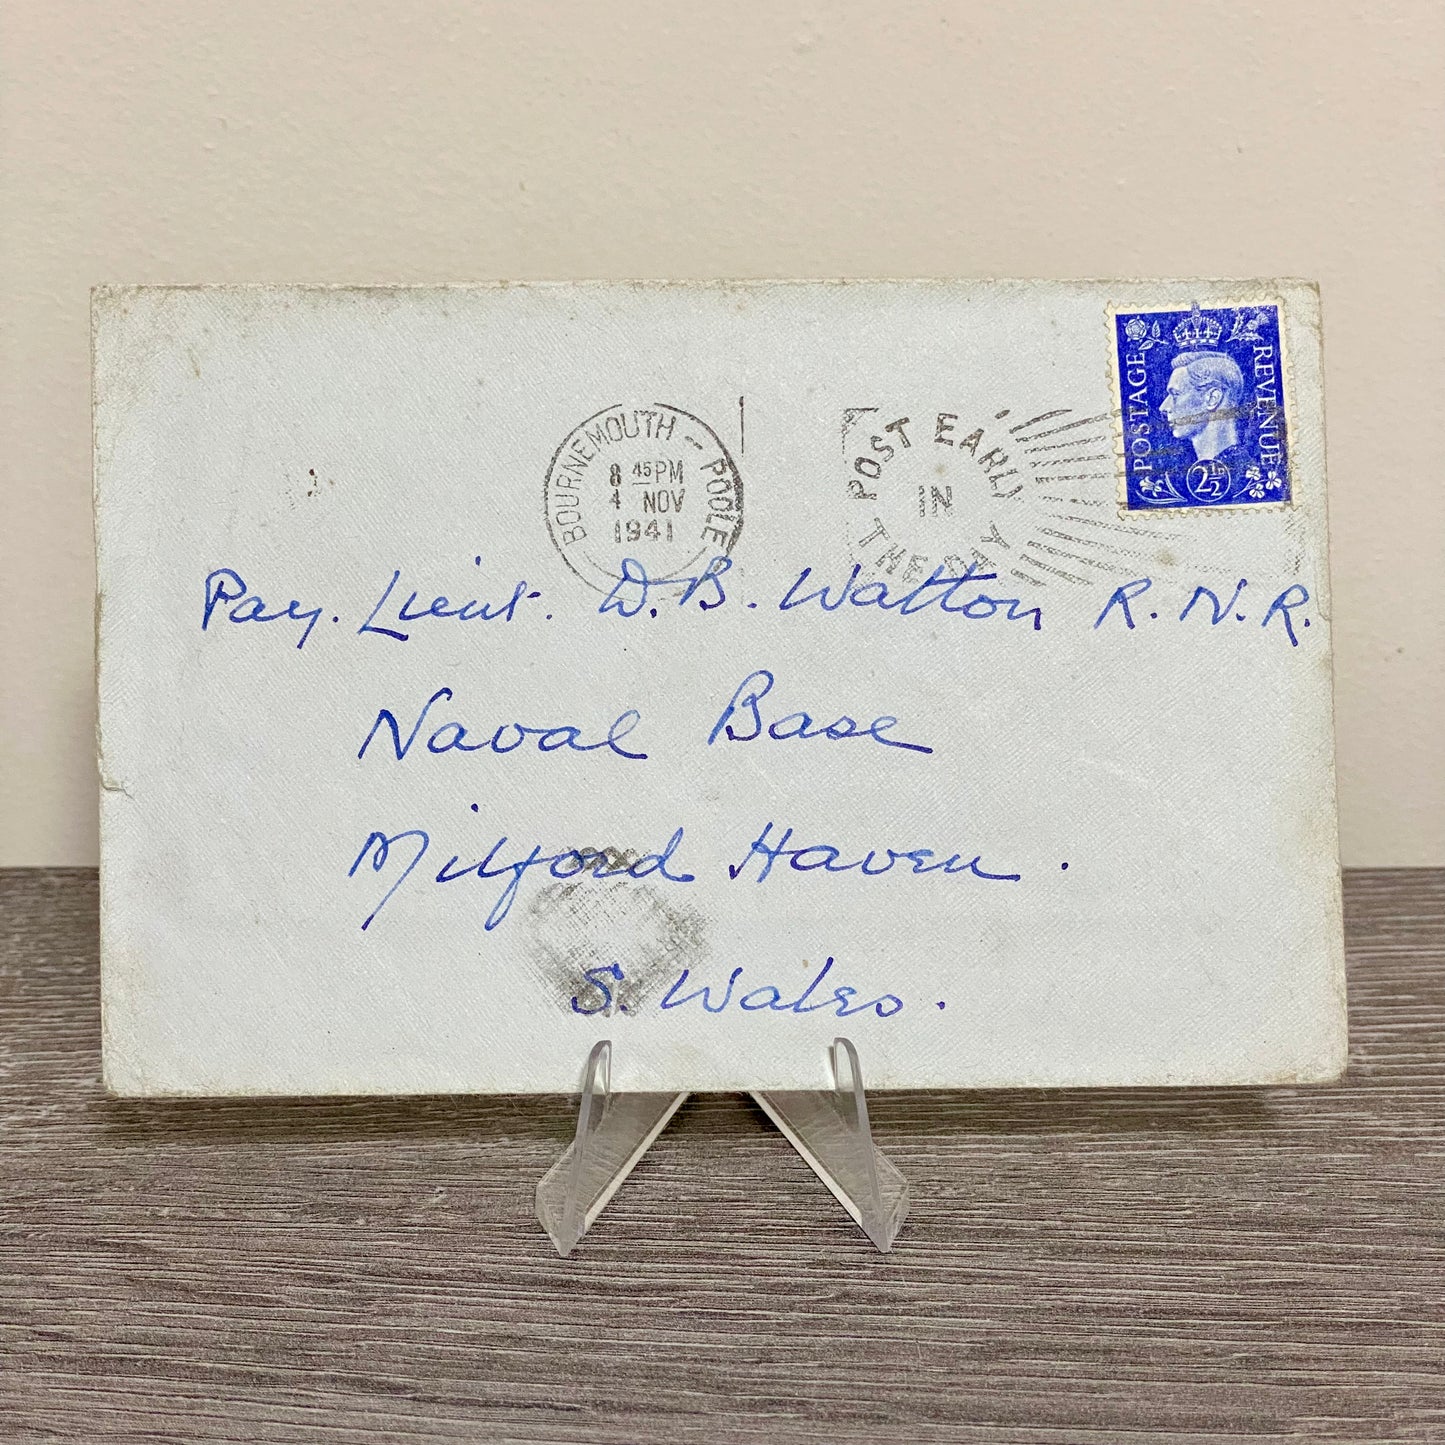 POSTAGE REVENUE
2½D
BOURNEMOUTH - POOLE
8 45 PM
4 NOV
1941
POST EARLY
IN
THE DAY
Pay. Lieut. D. B. Watton R. N. R.
Naval Base
Milford Haven.
S. Wales.